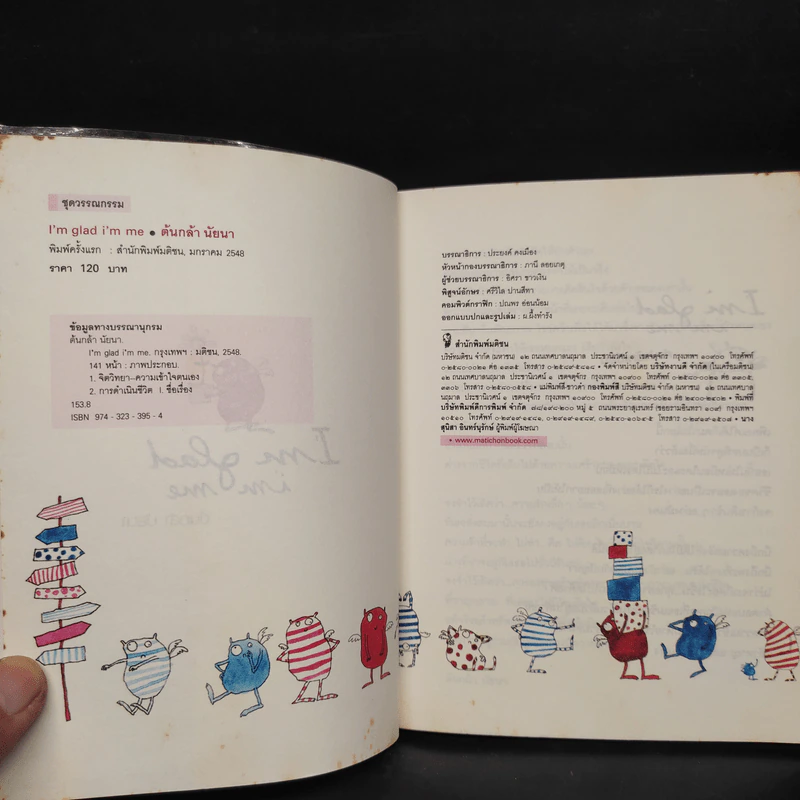 ชุดวรรณกรรม
I'm glad i'm me ● ต้นกล้า นัยนา
พิมพ์ครั้งแรก : สำนักพิมพ์มติชน, มกราคม 2548
ราคา 120 บาท
ข้อมูลทางบรรณานุกรม
ต้นกล้า นัยนา.
I'm glad i'm me. กรุงเทพฯ : มติชน, 2548.
141 หน้า : ภาพประกอบ.
1. จิตวิทยา--ความเข้าใจตนเอง
2. การดำเนินชีวิต I. ชื่อเรื่อง
153.8
ISBN 974 - 323 - 395 - 4
I'm glad
i'm me
บรรณาธิการ : ประยงค์ คงเมือง
หัวหน้ากองบรรณาธิการ : ภานี ลอยเกตุ
ผู้ช่วยบรรณาธิการ : อิศรา ชาวเงิน
พิสูจน์อักษร : ศรีวิไล ปานสีทา
คอมพิวต์กราฟิก : ปณพร อ่อนน้อม
ออกแบบปกและรูปเล่ม : ผ.ผึ้งทำรัง
สำนักพิมพ์มติชน
บริษัทมติชน จำกัด (มหาชน) ๑๒ ถนนเทศบาลนฤมาล ประชานิเวศน์ ๑ เขตจตุจักร กรุงเทพฯ ๑๐๙๐๐ โทรศัพท์
๐-๒๕๘๐-๐๐๒๑ ต่อ ๑๒๓๕ โทรสาร ๐-๒๕๘๙-๕๘๑๘ • จัดจำหน่ายโดย บริษัทงานดี จำกัด (ในเครือมติชน)
๑๒ ถนนเทศบาลนฤมาล ประชานิเวศน์ ๑ เขตจตุจักร กรุงเทพฯ ๑๐๙๐๐ โทรศัพท์ ๐-๒๕๘๐-๐๐๒๑ ต่อ
โทรสาร • แม่พิมพ์สี-ขาวดำ กองพิมพ์สี บริษัทมติชน จำกัด (มหาชน) ๑๒ ถนนเทศบาล
นฤมาล ประชานิเวศน์ ๑ เขตจตุจักร กรุงเทพฯ ๑๐๙๐๐ โทรศัพท์ ๐-๒๕๘๐-๐๐๒๑ ต่อ • พิมพ์ที่
บริษัทพิมพ์ดีการพิมพ์ จำกัด หมู่ ๕ ถนนพระยาสุเรนทร์ กรุงเทพฯ
๑๐๕๑๐ โทรศัพท์ โทรสาร • นาง
สุนิสา อินทร์นุรักษ์ ผู้พิมพ์ผู้โฆษณา
• www.matichonbook.com